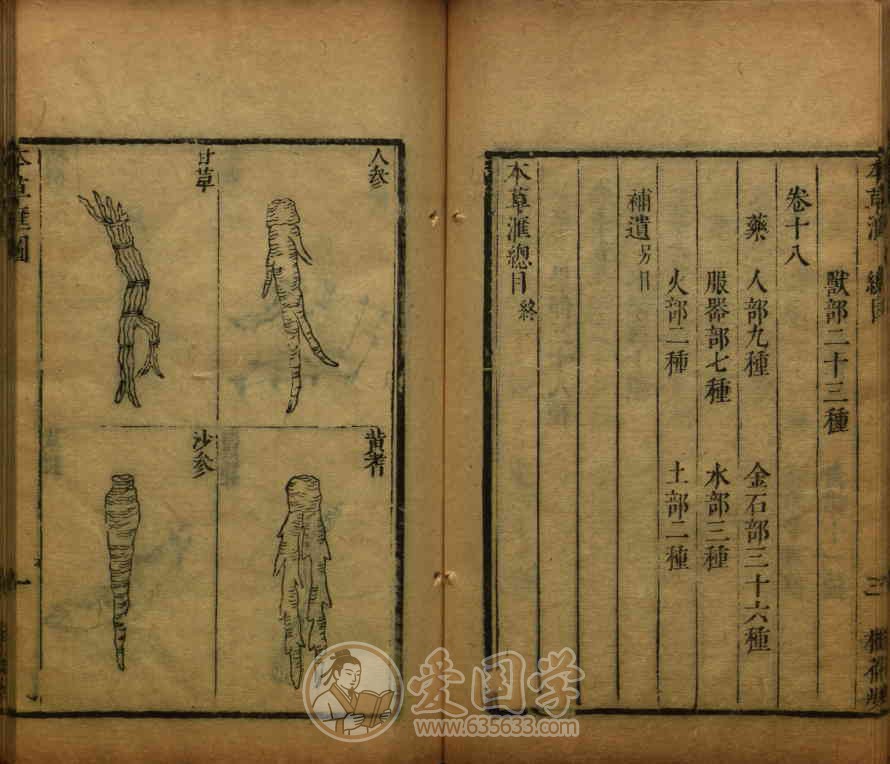 本草滙 總目
獸部二十三種
卷十八
藥 人部九種 金石部三十六種
服器部七種 水部三種
火部二種 土部二種
補遺 另目
本草滙總目 終
三
人參
黃耆
甘草
沙參
本草滙圖
一
爱国学
www.635633.com